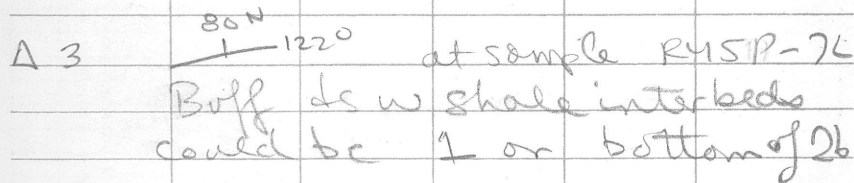 80 N
Δ 3 122° at sample R45P-7L
Buff ds w shale interbeds
could be 1 or bottom of 2b